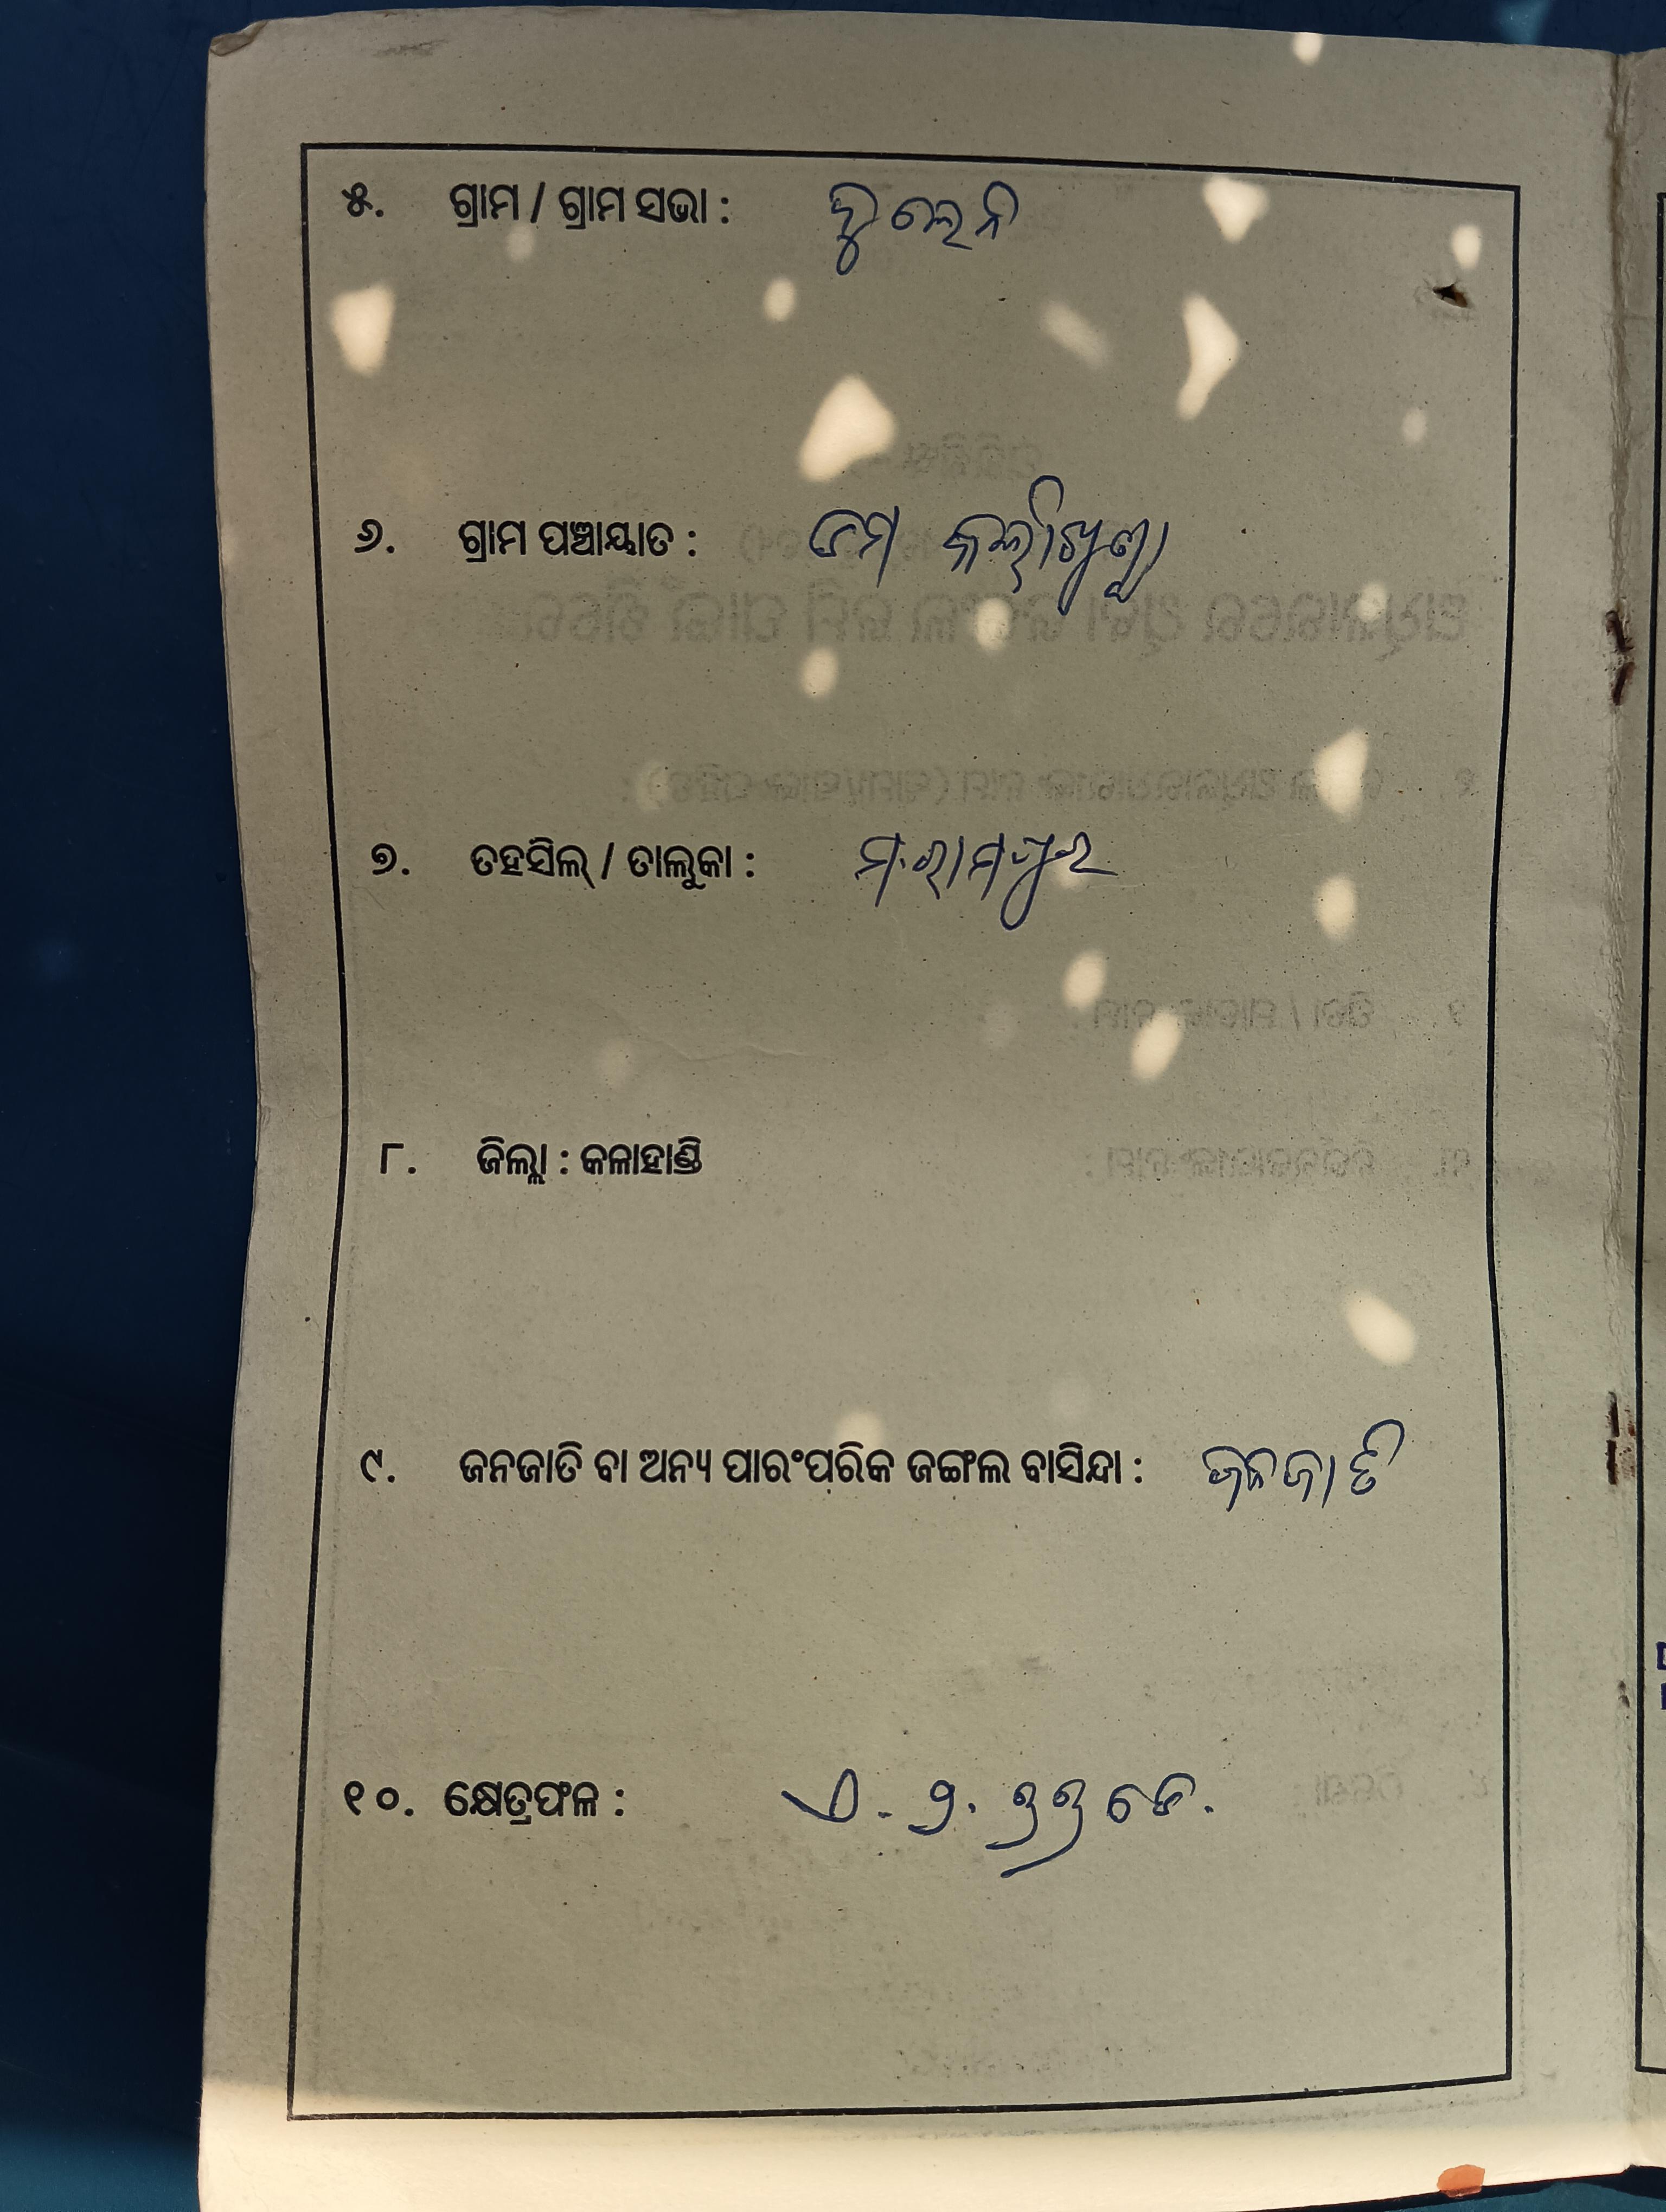 ୫. ଗ୍ରାମ / ଗ୍ରାମ ସଭା : ଦୁଲେନି
୬. ଗ୍ରାମ ପଞ୍ଚାୟାତ :
୭. ତହସିଲ୍ / ତାଲୁକା : ମ.ରାମପୁର
୮. ଜିଲ୍ଲା : କଳାହାଣ୍ଡି
୯. ଜନଜାତି ବା ଅନ୍ୟ ପାରଂପରିକ ଜଙ୍ଗଲ ବାସିନ୍ଦା : ଜନଜାତି
୧୦. କ୍ଷେତ୍ରଫଳ : ଏ - ୨.